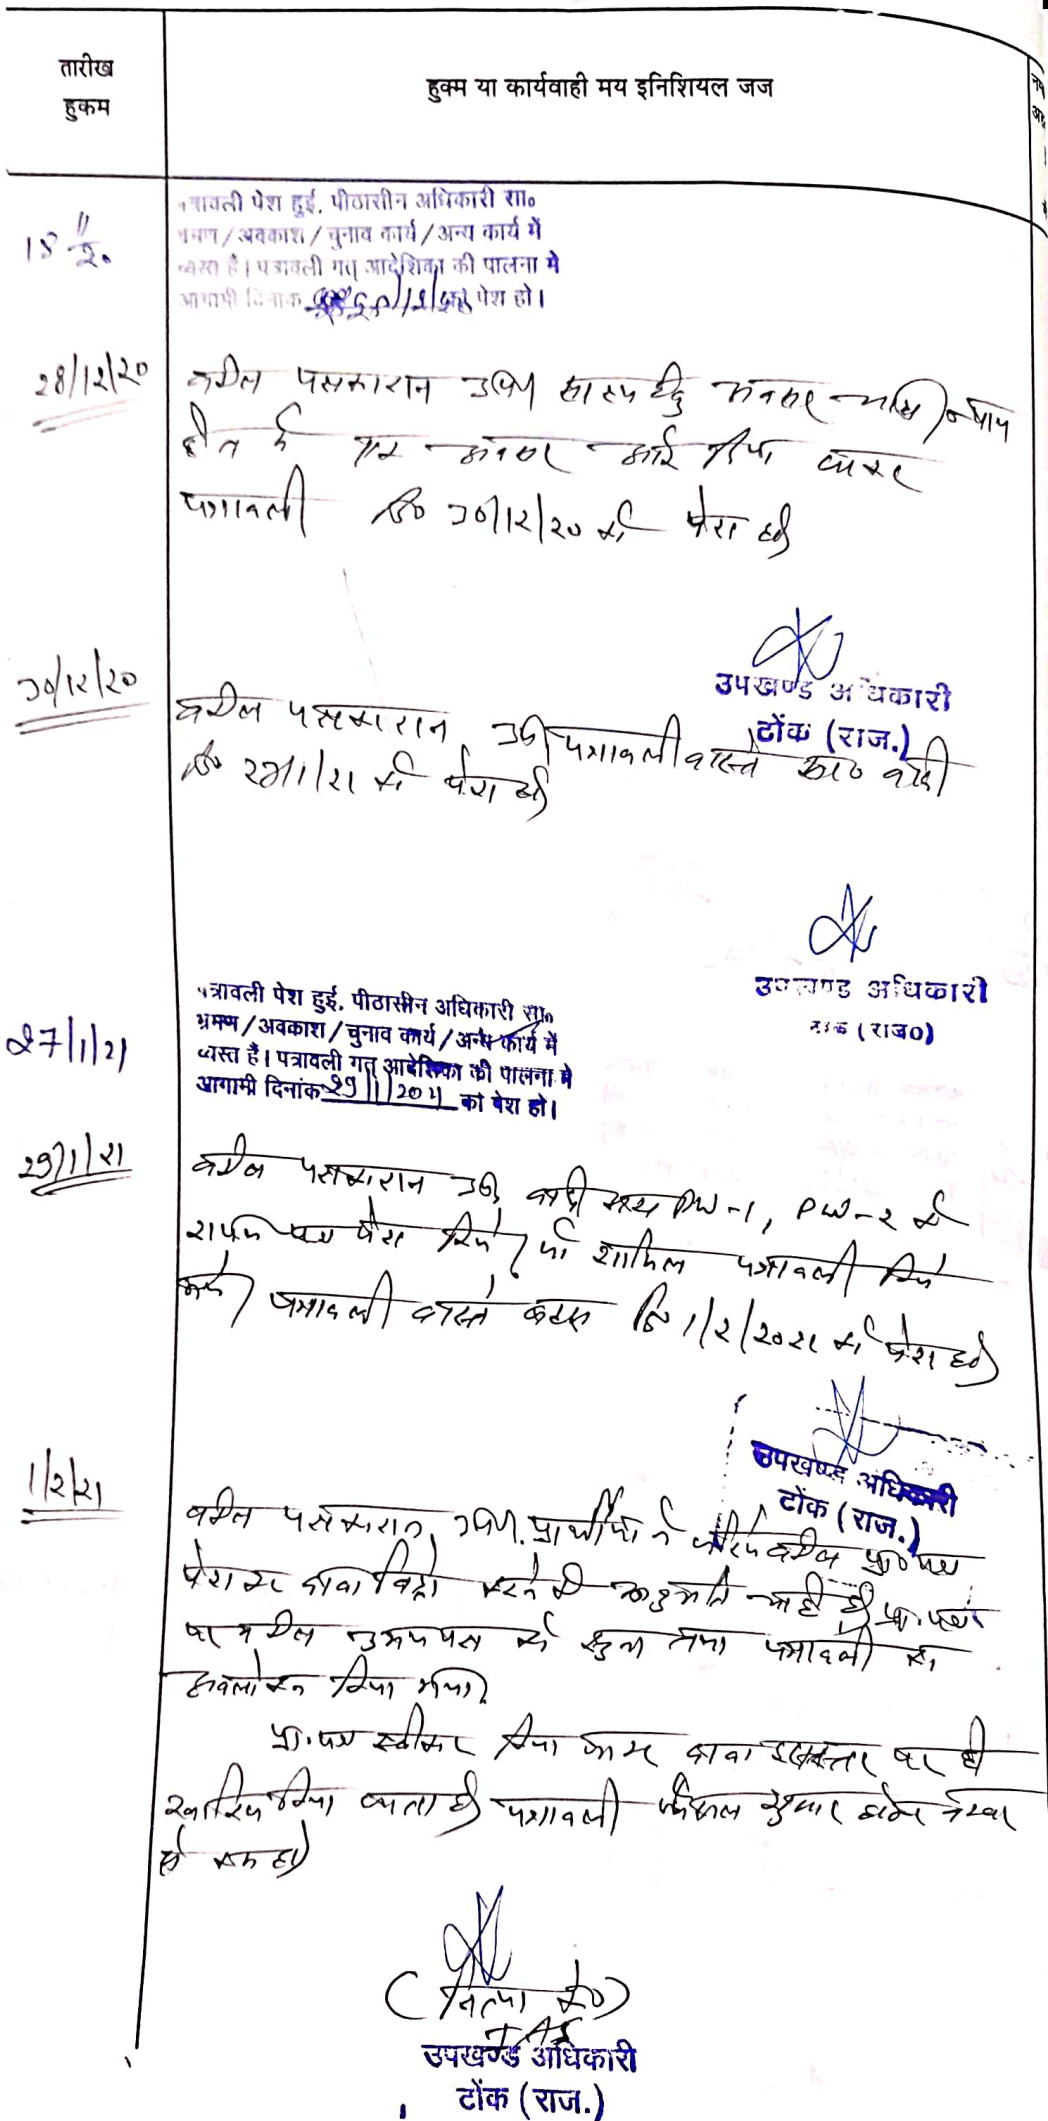 तारीख
हुकम
हुक्म या कार्यवाही मय इनिशियल जज
18 11/20
पत्रावली पेश हुई. पीठासीन अधिकारी सा०
भ्रमण/अवकाश/चुनाव कार्य/अन्य कार्य में
व्यस्त है। पत्रावली गत् आदेशिका की पालना मे
आगामी दिनाक को पेश हो।
28/12/20
वकील पक्षकारान उप० साक्ष्य हेतु अवसर चाहा न्याय
हित में अवसर दिया जाकर
पत्रावली दि० 30/12/20 को पेश हो
उपखण्ड अधिकारी
टोंक (राज.)
30/12/20
वकील पक्षकारान उप० पत्रावली वास्ते सा० वादी
दि० 27/1/21 को पेश हो
उपखण्ड अधिकारी
टोंक (राज०)
27/1/21
पत्रावली पेश हुई. पीठासीन अधिकारी सा०
भ्रमण/अवकाश/चुनाव कार्य/अन्य कार्य में
व्यस्त है। पत्रावली गत् आदेशिका की पालना मे
आगामी दिनांक 29/1/2021 को पेश हो।
29/1/21
वकील पक्षकारान उप० वादी साक्ष्य PW-1, PW-2 के
शपथ पत्र पेश किये जो शामिल पत्रावली किये
गये पत्रावली वास्ते बहस दि० 1/2/2021 को पेश हो
उपखण्ड अधिकारी
टोंक (राज.)
1/2/21
वकील पक्षकारान उप०. प्रार्थीया ने जरिये वकील प्रा० पत्र
पेश कर दावा विड्रो करने की अनुमति चाही है प्रा. पत्र
पर वकील उभयपक्ष को सुना तथा पत्रावली का
अवलोकन किया गया।
प्रा. पत्र स्वीकार किया जाकर दावा इसी स्तर पर ही
खारिज किया जाता है पत्रावली फैसल शुमार होकर नम्बर
से कम हो
(नित्या के०)
IAS
उपखण्ड अधिकारी
टोंक (राज.)